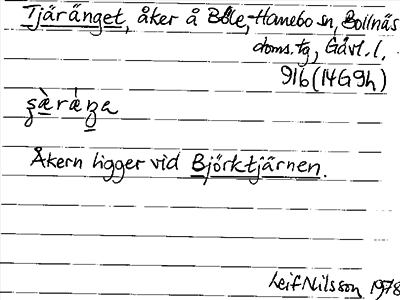 Tjäränget, åker å Böle, Hanebo sn, Bollnäs
doms.tg, Gävl. l.
91b (14G9h)
Åkern ligger vid Björktjärnen.
Leif Nilsson 1978